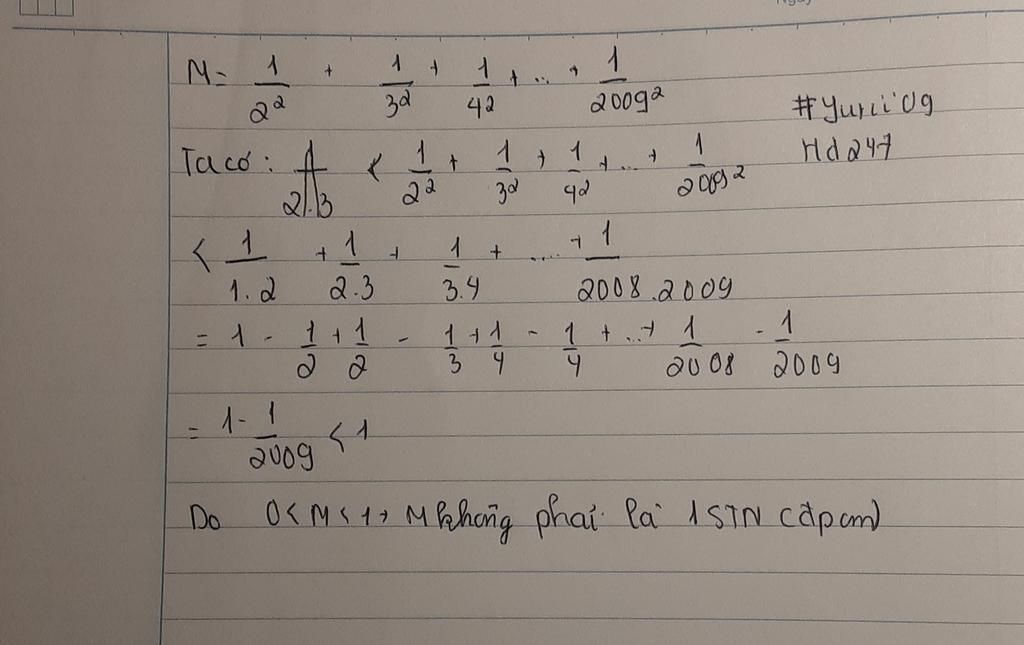 M = 1/2² + 1/3² + 1/4² + ... + 1/2009²
#Yurii'09
Hd247
Ta có: < 1/2² + 1/3² + 1/4² + ... + 1/2009²
< 1/1.2 + 1/2.3 + 1/3.4 + .... + 1/2008.2009
= 1 - 1/2 + 1/2 - 1/3 + 1/4 - 1/4 + ... + 1/2008 - 1/2009
= 1 - 1/2009 < 1
Do 0 < M < 1 → M không phải là 1 STN (đpcm)